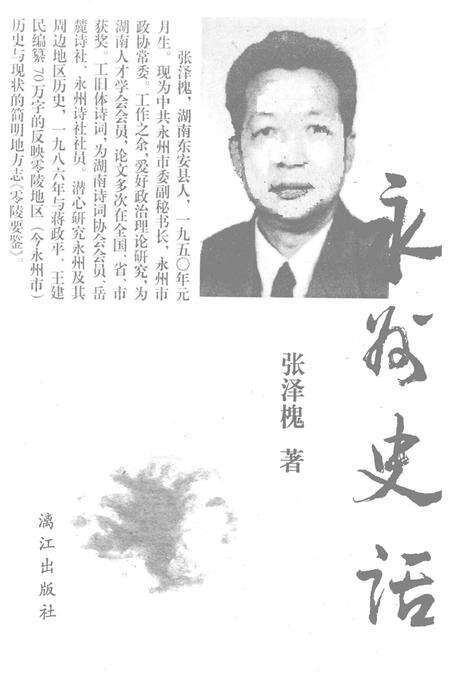 张泽槐，湖南东安县人，一九五〇年元
月生。现为中共永州市委副秘书长，永州市
政协常委。工作之余，爱好政治理论研究，为
湖南人才学会会员，论文多次在全国、省、市
获奖。工旧体诗词，为湖南诗词协会会员、岳
麓诗社、永州诗社社员。潜心研究永州及其
周边地区历史，一九八六年与蒋政平、王建
民编纂70万字的反映零陵地区（今永州市）
历史与现状的简明地方志《零陵要鉴》。
永州史话
张泽槐 著
漓江出版社